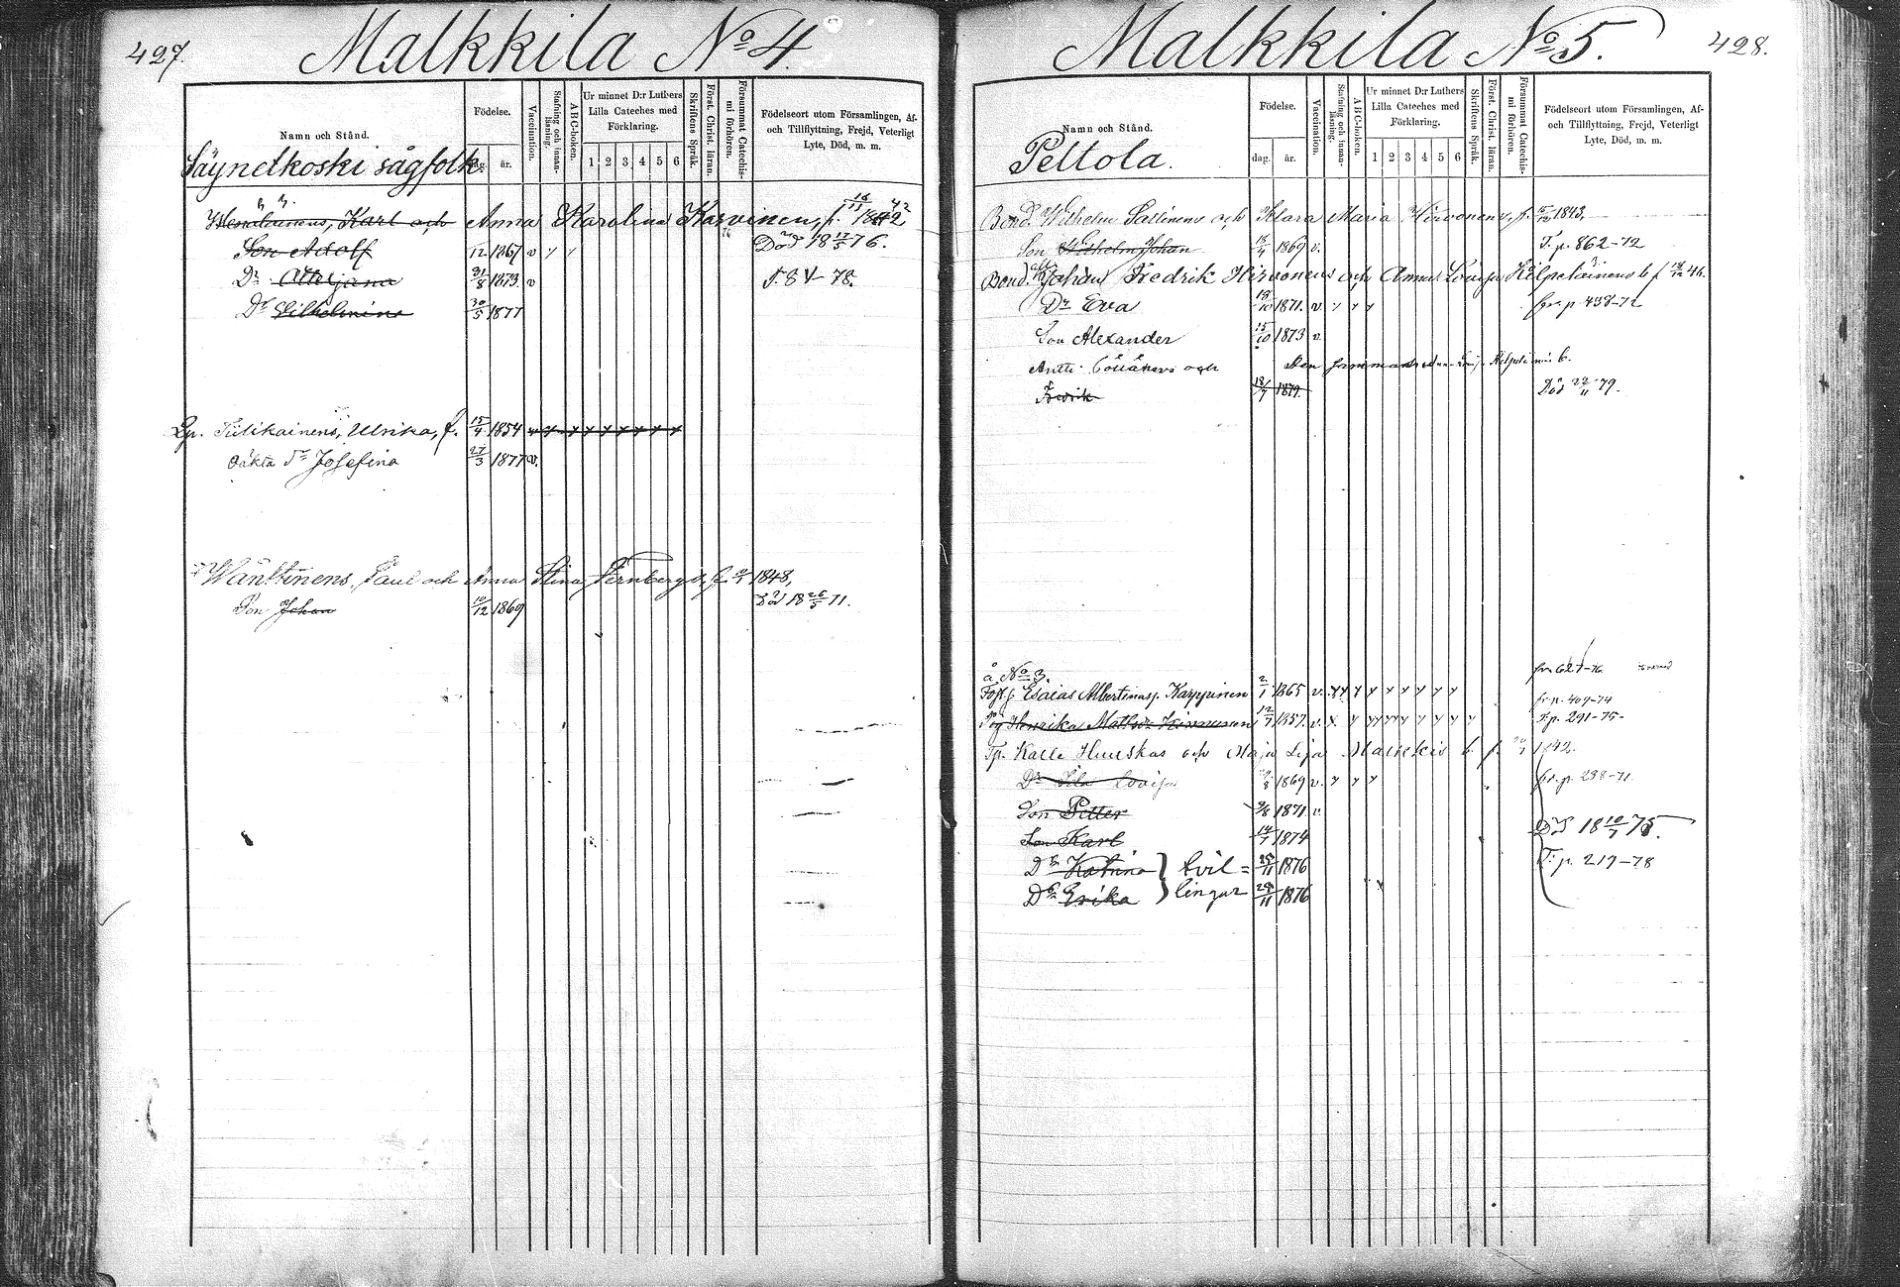 427.
Malkkila No 4.
Namn och Stånd.
Födelse.
dag. år.
Vaccination.
Stafning och innanläsning.
ABC-boken.
Ur minnet D:r Luthers Lilla Cateches med Förklaring.
1 2 3 4 5 6
Skriftens Språk.
Först. Christ. läran.
Försummat Catechismi förhören.
Födelseort utom Församlingen, Af- och Tillflyttning, Frejd, Veterligt Lyte, Död, m. m.
Säynetkoski sågfolk.
Karl och Anna Karolina Karvinen, f. 16/11 1842
Son Adolf 12 1867 v Död 18 17/5 76.
Dr 21/8 1873 v 78.
Dr Vilhelmina 30/5 1877
Lp. Tulikainens, Ulrika, f. 15/4 1854
oäkta dr Josefina 27/3 1877 v.
Wänttinens, Paul och Anna Stina Fernbergs, f. 1848,
Son Johan 10/12 1869 Död 18 26/5 71.
428.
Malkkila No 5.
Namn och Stånd.
Födelse.
dag. år.
Vaccination.
Stafning och innanläsning.
ABC-boken.
Ur minnet D:r Luthers Lilla Cateches med Förklaring.
1 2 3 4 5 6
Skriftens Språk.
Först. Christ. läran.
Försummat Catechismi förhören.
Födelseort utom Församlingen, Af- och Tillflyttning, Frejd, Veterligt Lyte, Död, m. m.
Peltola.
Bond. Wilhelm Sallinens och Klara Maria Hirvonens, f. 1843,
Son Wilhelm Johan 1869 v. T. p. 862-72
Bond. Johan Fredrik Hirvonens och Anna Lovisa Kilpeläinens b. f. 46.
Dr Eva 18/10 1871. v. fr. p. 438-72
Son Alexander 15/10 1873 v.
Antti och Den
Fredrik 18/7 1879. Död 22/11 79.
å No 3. fr. 627-76
Esaias Albertinusp. Karppinen 2/1 1865 v. fr. p. 409-74
Henrika Matlsdr Hirvonen 12/7 1857. v. T. p. 291-75
Tp. Kalle Huuskas och Maja Lisa b. f. 1842.
Dr Lovisa 1869 v. fr. p. 298-71
Son Petter 9/8 1871 v.
Son Karl 14/7 1874 Död 18 10/7 75.
Dr Katrina } tvil= 25/11 1876 T. p. 219-78
Dr Erika } lingar 25/11 1876